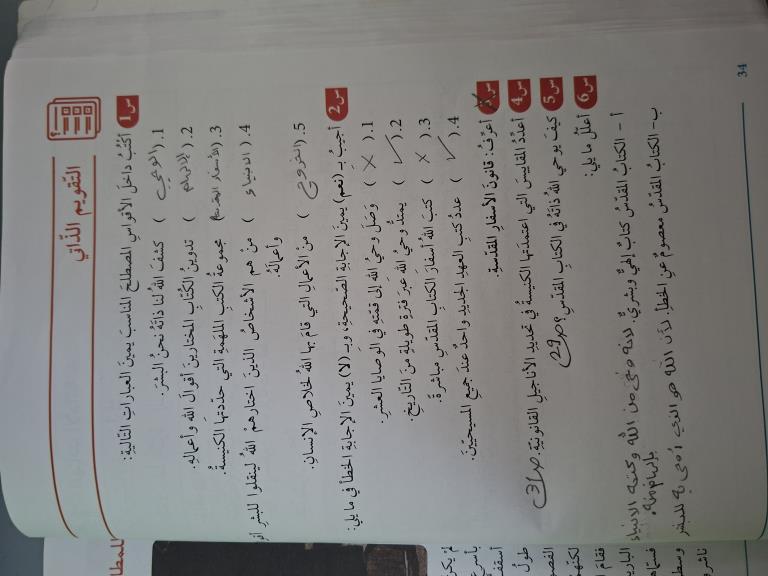 التقويم الذّاتي
س1 أكتُبُ داخلَ الأقواسِ المصطلحَ المناسبَ يمينَ العباراتِ التّاليةِ:
1. (الوحي) كشفَ اللهُ لنا ذاتَهُ نحنُ البشرَ.
2. (الإلهام) تدوينُ الكُتّابِ المختارينَ أقوالَ اللهِ وأعمالهِ.
3. (الأسفار المقدسة) مجموعةُ الكتبِ الملهَمةِ التي حدّدتها الكنيسةُ.
4. (الانبياء) منْ هم الأشخاصُ الذينَ اختارهم اللهُ لينقلوا للبشرِ
وأعمالَهُ.
5. (الخروج) منْ الأعمالِ التي قامَ بها اللهُ لخلاصِ الإنسانِ.
س2 أجيبُ بـِ (نعم) يمينَ الإجابةِ الصّحيحةِ، وبـِ (لا) يمينَ الإجابةِ الخطأ في ما يلي:
1. (×) وَصَلَ وحيُ اللهِ إلى قمّتهِ في الوصايا العشرِ.
2. (✓) يمتدُّ وحيُ اللهِ عبرَ فترةٍ طويلةٍ منَ التّاريخِ.
3. (×) كتبَ اللهُ أسفارَ الكتابِ المقدّسِ مباشرةً.
4. (✓) عددُ كتبِ العهدِ الجديدِ واحدٌ عندَ جميعِ المسيحيّينَ.
س3 أعرِّفُ: قانونَ الأسفارِ المقدّسةِ.
س4 أعدِّدُ المقاييسَ التي اعتمدتها الكنيسةُ في تحديدِ الأناجيلِ القانونيّةِ. ص31
س5 كيفَ يوحي اللهُ ذاتَهُ في الكتابِ المقدّسِ؟ ص29
س6 أعلّلُ ما يلي:
أ - الكتابُ المقدّسُ كتابٌ إلهيٌّ وبشريٌّ. لانه وحي من الله وكتبه الانبياء
بإلهام منه.
ب- الكتابُ المقدّسُ معصومٌ عنِ الخطأ. لأن الله هو الذي أوحى به للبشر
34